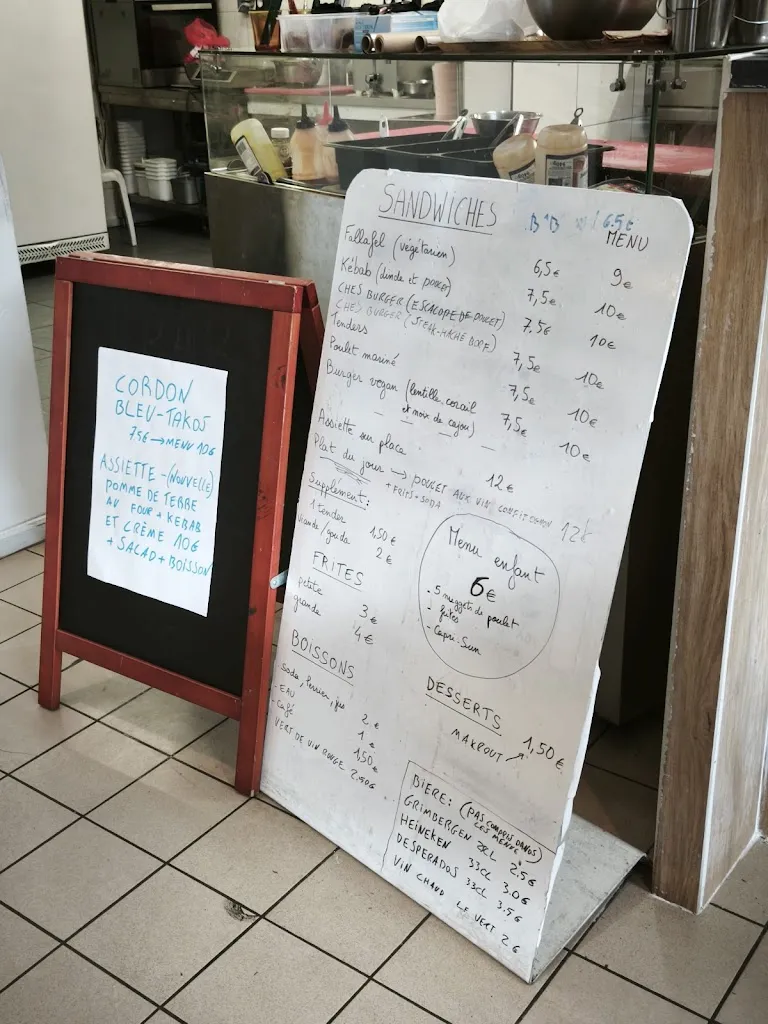 CORDON
BLEU-TAKOS
7,5€ → MENU 10€
ASSIETTE - (NOUVELLE)
POMME DE TERRE
AU FOUR + KEBAB
ET CRÈME 10€
+ SALAD + BOISSON
SANDWICHES
6.5€
MENU
Fallafel (végétarien) 6,5€ 9€
Kébab (dinde et poulet) 7,5€ 10€
CHES BURGER (ESCALOPE DE POULET) 7.5€ 10€
CHES BURGER (STEAK-HACHÉ BOEF)
Tenders 7,5€ 10€
Poulet mariné 7,5€ 10€
Burger vegan (lentille corail
et noix de cajou) 7,5€ 10€
Assiette sur place 12€
Plat du jour → POULET AUX VIN CONFIT 12€
+ FRITS + SODA
Supplément:
1 tender 1,50€
viande/gouda 2€
FRITES
petite 3€
grande 4€
BOISSONS
Soda, Perrier, jus 2€
- EAU 1€
- Café 1,50€
VERT DE VIN ROUGE 2.50€
Menu enfant
6€
- 5 nuggets de poulet
- frites
- Capri-Sun
DESSERTS
MAKROUT 1,50€
BIERE: (PAS COMPRIS DANGS
LES MENUE)
GRIMBERGEN 2.5€
HEINEKEN 33CL 3.0€
DESPERADOS 33CL 3.5€
VIN CHAUD LE VERT 2€